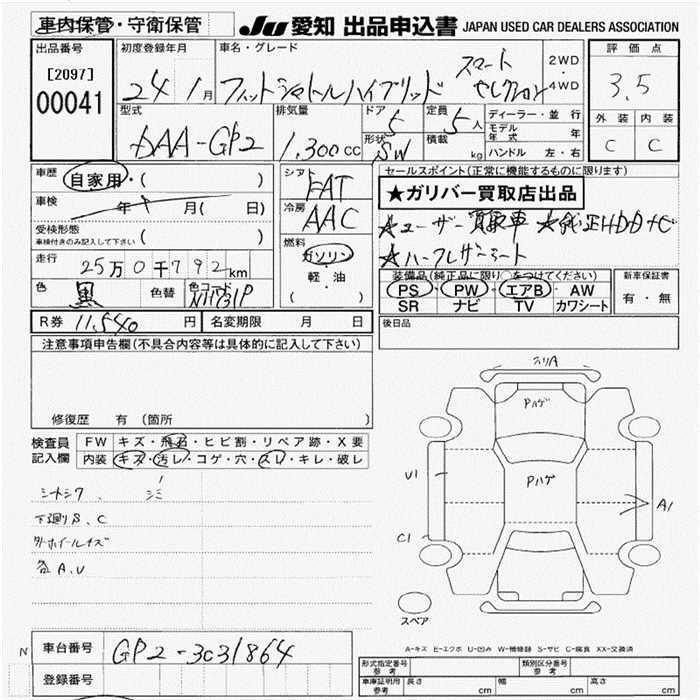 車内保管・守衛保管
JU愛知 出品申込書 JAPAN USED CAR DEALERS ASSOCIATION
出品番号
[2097]
00041
初度登録年月
24 1月
車名・グレード
フィットシャトルハイブリッド スマートセレクション
2WD
・
4WD
評価点
3.5
外装 内装
C C
型式
DAA-GP2
排気量
1.300cc
ドア
5
形状
SW
定員
5人
積載
kg
ディーラー・並行
モデル年式 年
ハンドル 左・右
車歴
自家用・( )
車検
年 月( 日)
受検形態
車検付きのみ記入して下さい ( )
走行
25万0千792km
色
黒
色替
色コード
NH731P
シフト
FAT
冷房
AAC
燃料
ガソリン
・
軽・油
( )
セールスポイント(正常に機能するものに限ります)
★ガリバー買取店出品
★ユーザー買取車
★ハーフレザーシート
装備品(純正品に限り○をつけてください)
PS・PW・エアB・AW
SR ナビ TV カワシート
新車保証書
有・無
後日品
R券 11,540円
名変期限 月 日
注意事項申告欄(不具合内容等は具体的に記入して下さい)
修復歴 有(箇所 )
検査員記入欄
FW キズ・飛石・ヒビ割・リペア跡・X要
内装 キズ・汚レ・コゲ・穴・スレ・キレ・破レ
シートシワ、シミ
下廻りS、C
外ホイールキズ
各A、U
スリA
Pハゲ
Pハゲ
U1
A1
C1
スペア
A-キズ E-エクボ U-凹み W-補修跡 S-サビ C-腐食 XX-交換済
N
車台番号
GP2-3031864
登録番号
形式指定番号 参考
類別区分番号 参考
車庫証明用 参考
長さ cm
幅 cm
高さ cm